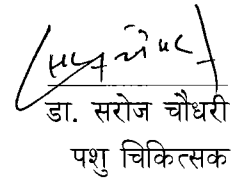 डा. सरोज चौधरी
पशु चिकित्सक